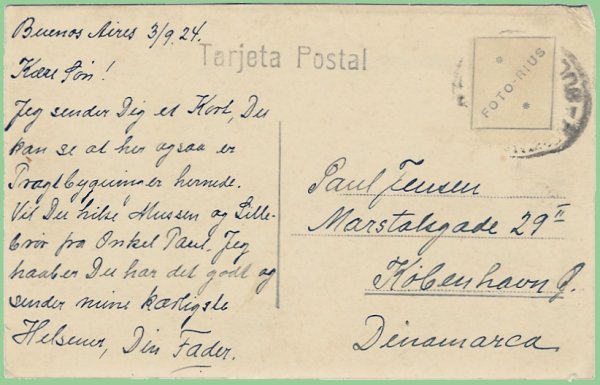 Buenos Aires 3/9.24.
Tarjeta Postal
Kære Søn!
Jeg sender Dig et Kort, Du
kan se at her ogsaa er
Pragtbygninger hernede.
Vil Du hilse Mussen og Lille-
bror fra Onkel Paul. Jeg
haaber Du har det godt og
sender mine kærligste
Helsener, Din Fader.
FOTO-RIUS
Paul Jensen
Marstalsgade 29 II
København Ø.
Dinamarca